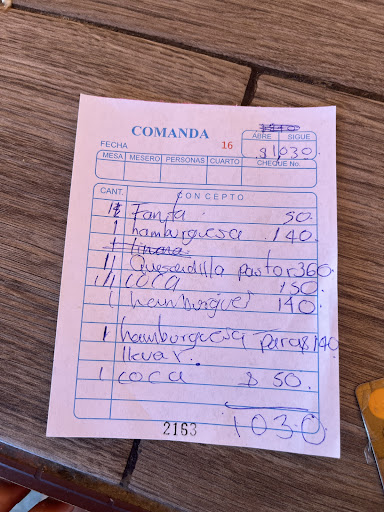 COMANDA
16
ABRE SIGUE
FECHA
$1,030.
MESA MESERO PERSONAS CUARTO CHEQUE No.
CANT. CONCEPTO
Fanta. 50.
1 hamburguesa 140.
11 Quesadilla pastor 360.
COCA 150.
1 hamburgues 140.
1 hamburguesa para $140
llevar.
1 COCA $ 50.
1030
2163